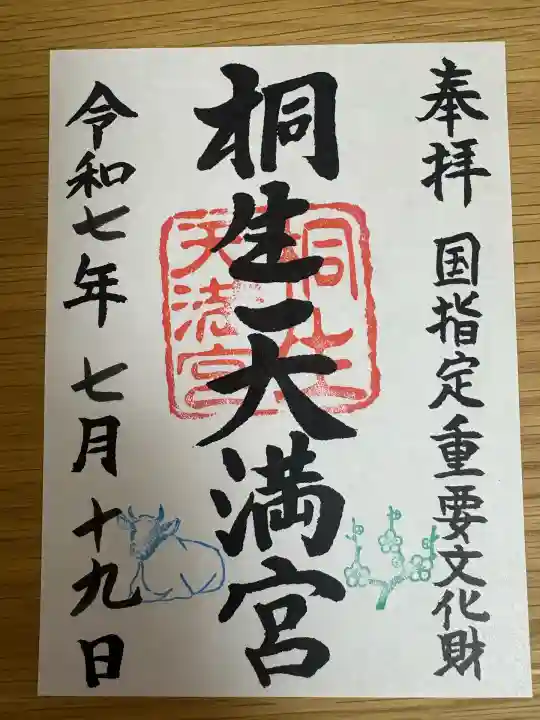 奉拝 国指定重要文化財
桐生天満宮
桐生
天満宮
令和七年 七月十九日